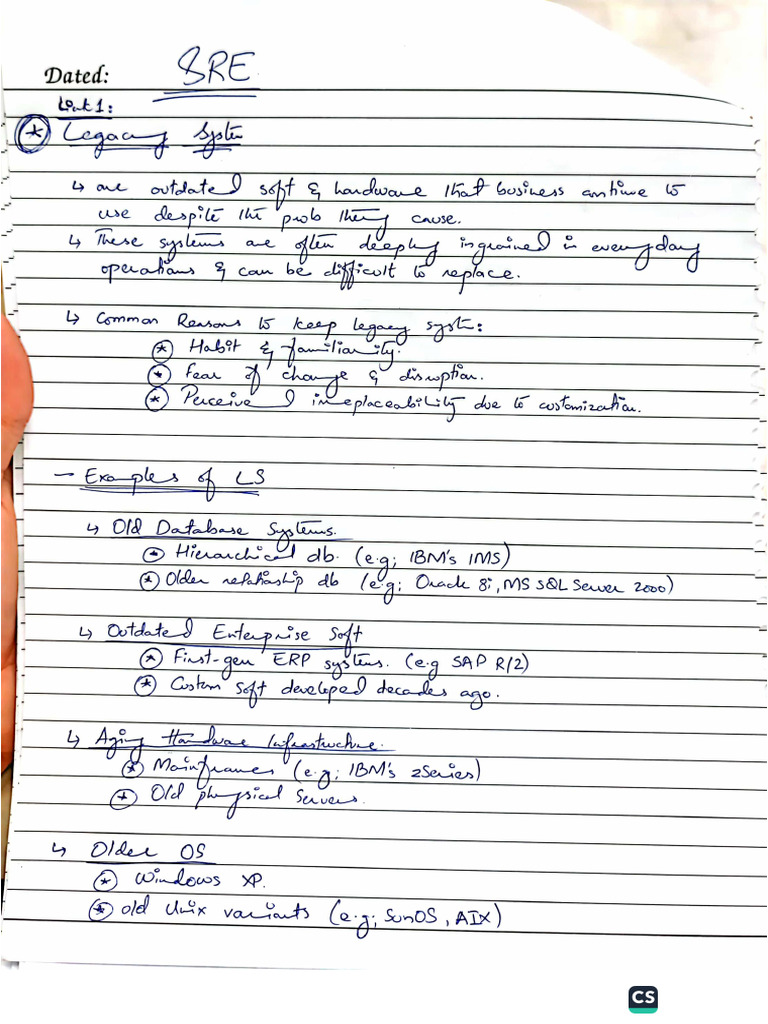 Dated: SRE
Lec# 1:
Legacy System
↳ are outdated soft & hardware that business continue to
use despite the prob they cause.
↳ These systems are often deeply ingrained in everyday
operations & can be difficult to replace.
↳ Common Reasons to keep legacy syst:
* Habit & familiarity.
* Fear of change & disruption.
* Perceived irreplaceability due to customization.
- Examples of LS
↳ Old Database Systems.
* Hierarchical db. (e.g; IBM's IMS)
* Older relationship db (e.g; Oracle 8i, MS SQL Server 2000)
↳ Outdated Enterprise Soft
* First-gen ERP systems. (e.g SAP R/2)
* Custom Soft developed decades ago.
↳ Aging Hardware Infrastructure.
* Mainframes (e.g; IBM's zSeries)
* Old physical Servers.
↳ Older OS
* Windows XP.
* old Unix variants (e.g; SunOS, AIX)
CS